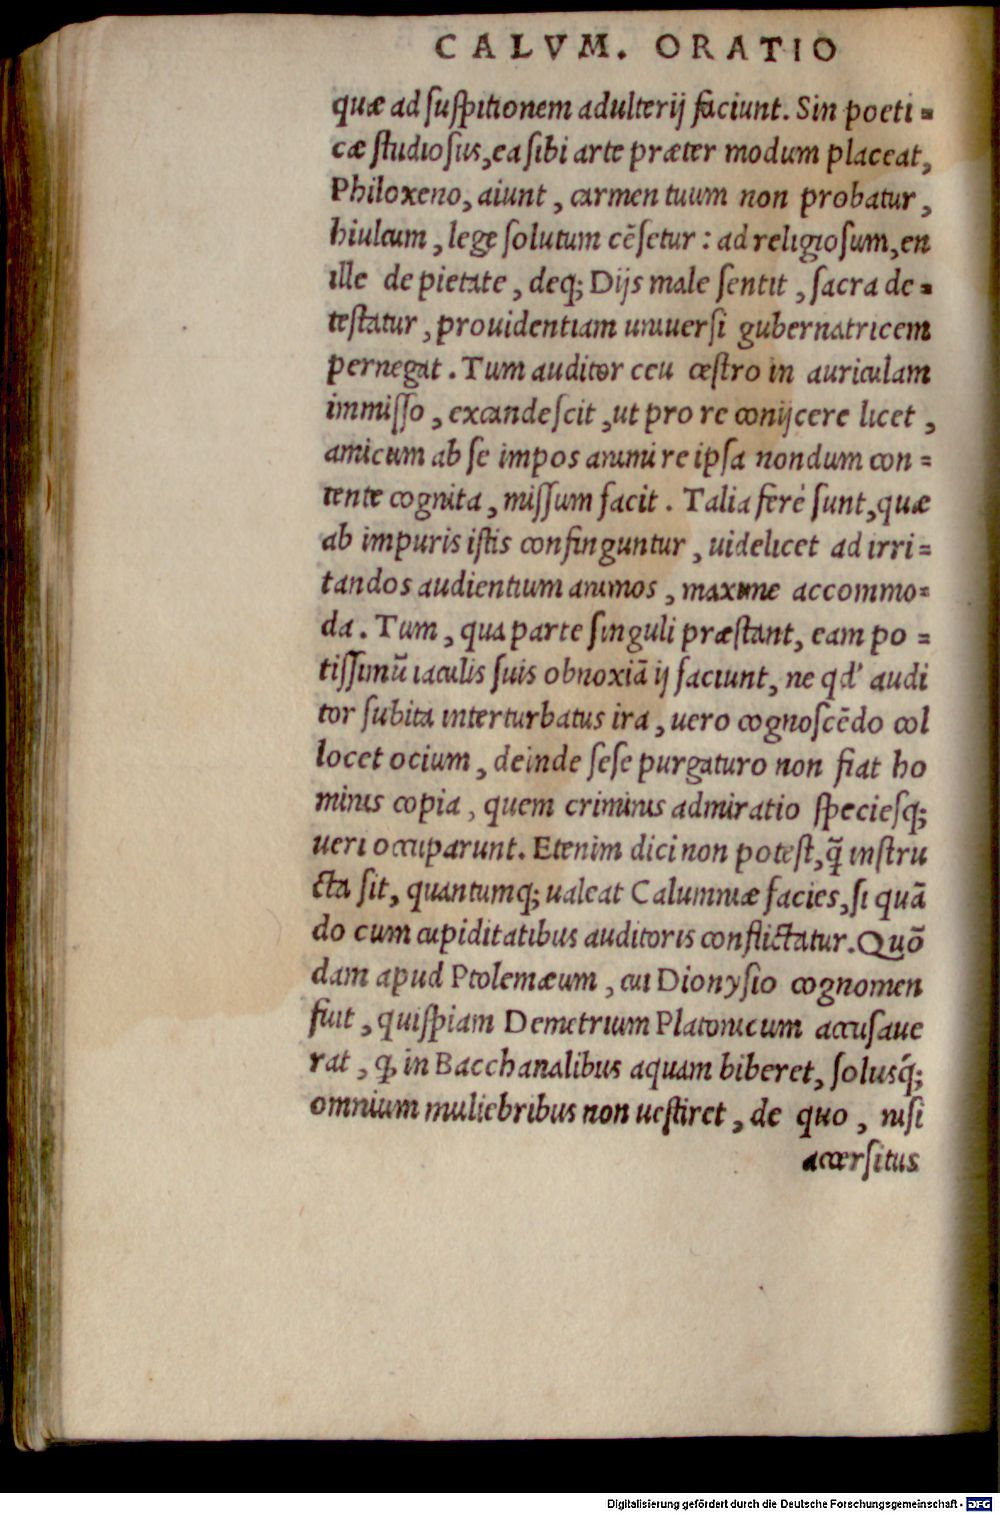 CALVM. ORATIO
quæ ad suspitionem adulterij faciunt. Sin poeti=
cæ studiosus, ea sibi arte præter modum placeat,
Philoxeno, aiunt, carmen tuum non probatur,
hiulcum, lege solutum cēsetur: ad religiosum, en
ille de pietate, deq; Dijs male sentit, sacra de=
testatur, prouidentiam uniuersi gubernatricem
pernegat. Tum auditor ceu œstro in auriculam
immisso, excandescit, ut pro re conijcere licet,
amicum ab se impos animi re ipsa nondum con=
tente cognita, missum facit. Talia ferè sunt, quæ
ab impuris istis confinguntur, uidelicet ad irri=
tandos audientium animos, maxime accommo=
da. Tum, qua parte singuli præstant, eam po=
tissimū iaculis suis obnoxiā ij faciunt, ne qd' audi
tor subita interturbatus ira, uero cognoscēdo col
locet ocium, deinde sese purgaturo non fiat ho
minis copia, quem criminis admiratio speciesq;
ueri occuparunt. Etenim dici non potest, q̄ instru
cta sit, quantumq; ualeat Calumniæ facies, si quā
do cum cupiditatibus auditoris conflictatur. Quō
dam apud Ptolemæum, cui Dionysio cognomen
fuit, quispiam Demetrium Platonicum accusaue
rat, ꝙ in Bacchanalibus aquam biberet, solusq́;
omnium muliebribus non uestiret, de quo, nisi
accersitus
Digitalisierung gefördert durch die Deutsche Forschungsgemeinschaft - DFG